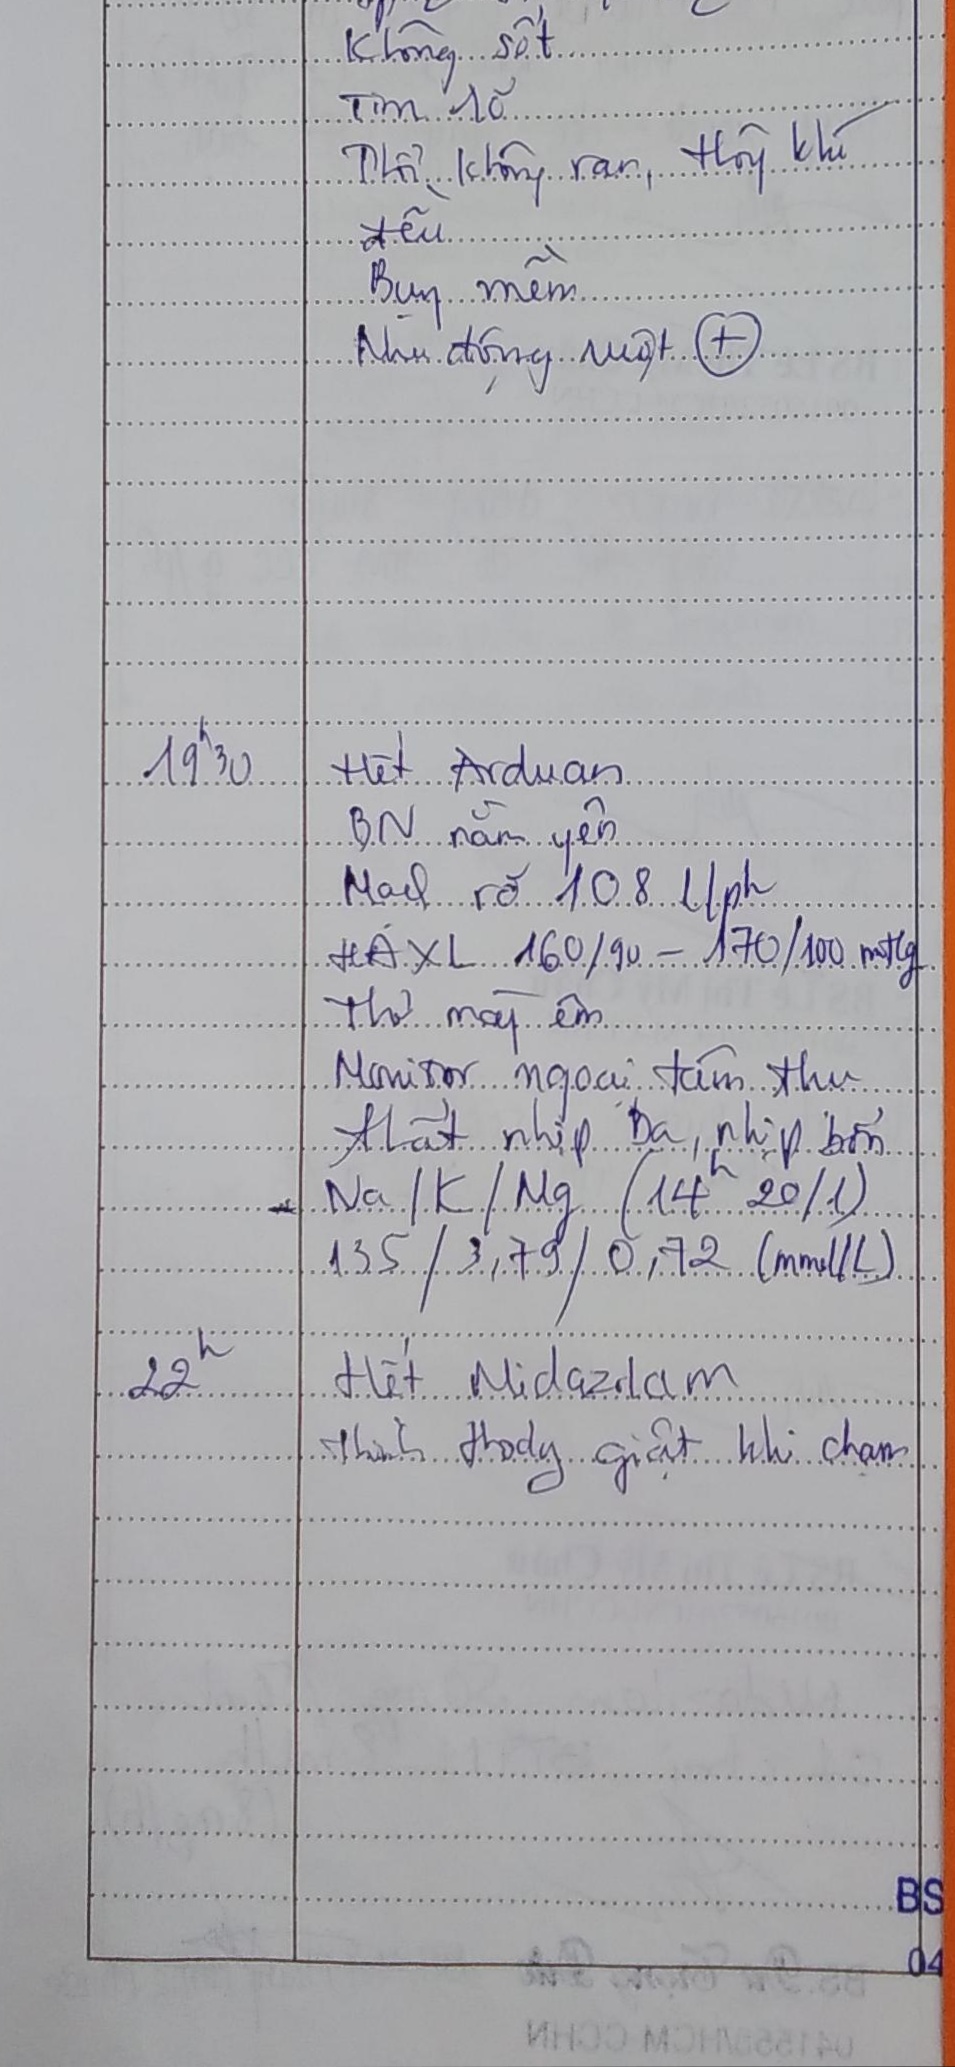 Không sốt
Tim rõ
Phổi không ran, thông khí
đều
Bụng mềm
Nhu động ruột (+)
19h30 Hết Arduan
BN nằm yên
Mạch rõ 108 l/ph
HAXL 160/90 - 170/100 mmHg
Thở máy êm
Monitor ngoại tâm thu
thất nhịp ba, nhịp bốn
Na/K/Mg (14h 20/1)
135/3,79/0,72 (mmol/L)
22h Hết Midazolam
giật khi chạm
BS
04